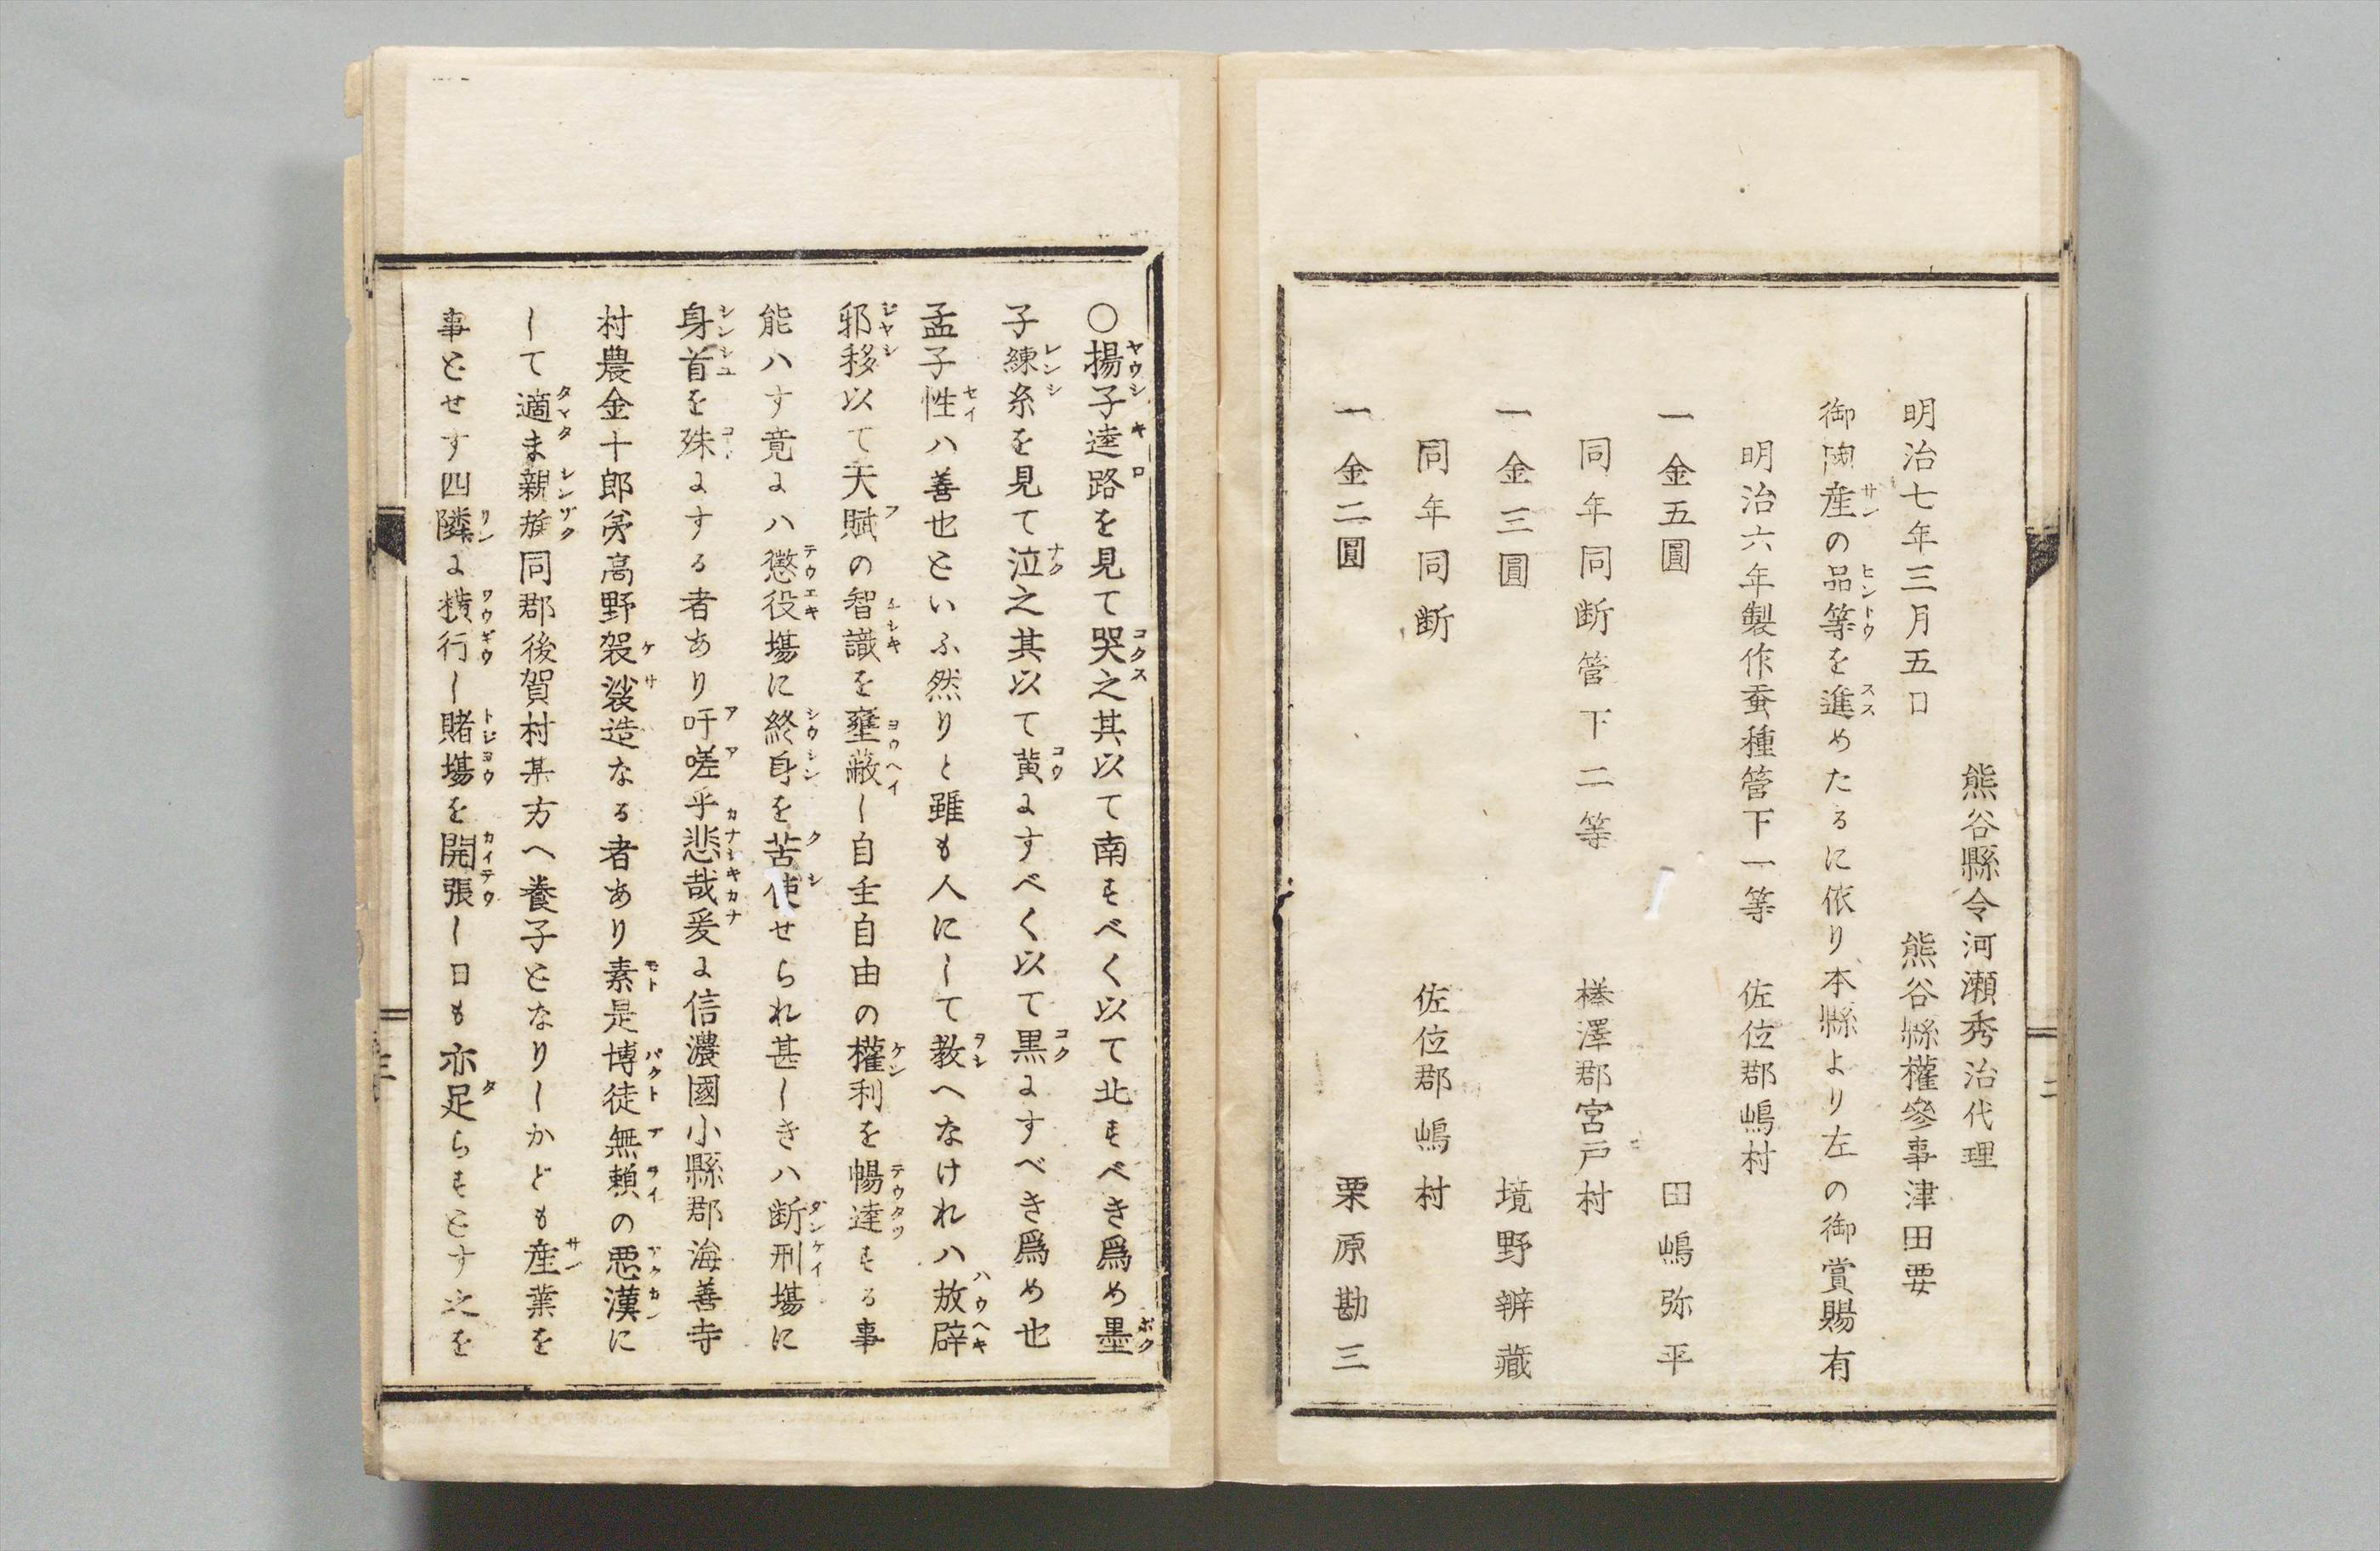 熊谷縣令河瀬秀治代理
明治七年三月五日　熊谷縣權參事津田要
御陶産の品等を進めたるに依り本縣より左の御賞賜有
明治六年製作蚕種管下一等　佐位郡嶋村
一金五圓　田嶋弥平
同年同断管下二等　榛澤郡宮戸村
一金三圓　境野辧藏
同年同断　佐位郡嶋村
一金二圓　栗原勘三
二
○揚子逵路を見て哭之其以て南すべく以て北すべき爲め墨
子練糸を見て泣之其以て黄にすべく以て黒にすべき爲め也
孟子性ハ善也といふ然りと雖も人にして教へなけれハ放辟
邪移以て天賦の智識を壅蔽し自主自由の權利を暢達する事
能ハす竟にハ懲役塲に終身を苦使せられ甚しきハ断刑塲に
身首を殊にする者あり吁嗟乎悲哉爰に信濃國小縣郡海善寺
村農金十郎弟高野袈裟造なる者あり素是博徒無頼の悪漢に
して適ま親族同郡後賀村某方へ養子となりしかども産業を
事とせす四隣に横行し賭塲を開張し日も亦足らすとす之を
三